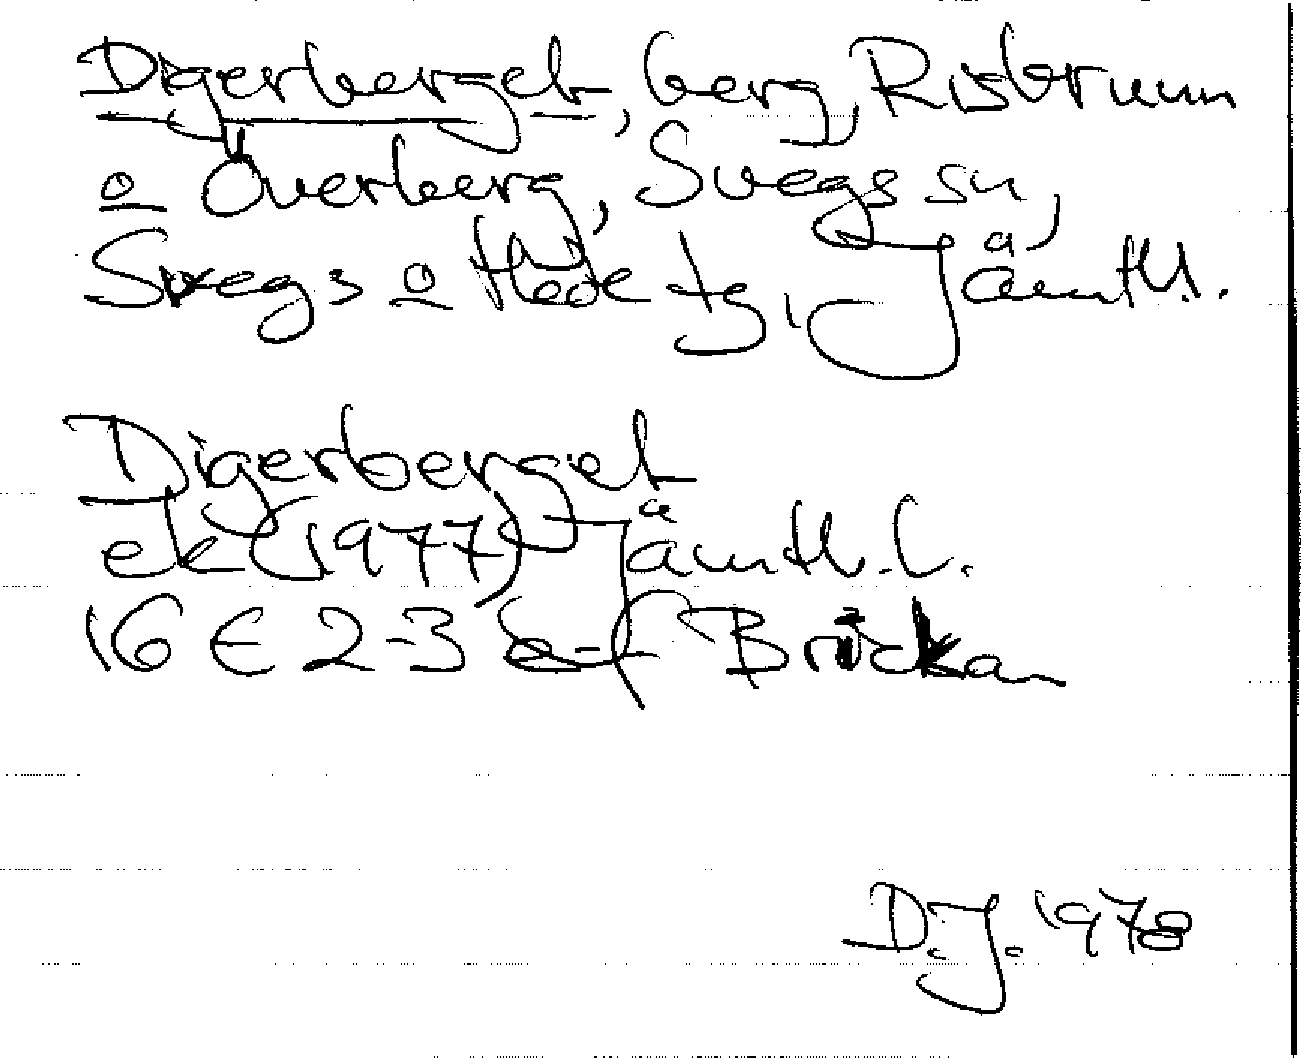 Digerberget, berg, Risbrunn
o Överberg, Svegs sn,
Svegs o Hede tg, Jämtl.
Digerberget
ek (1977) Jämtl. l.
16 E 2-3 e-f Bröckan
D.J. 1978